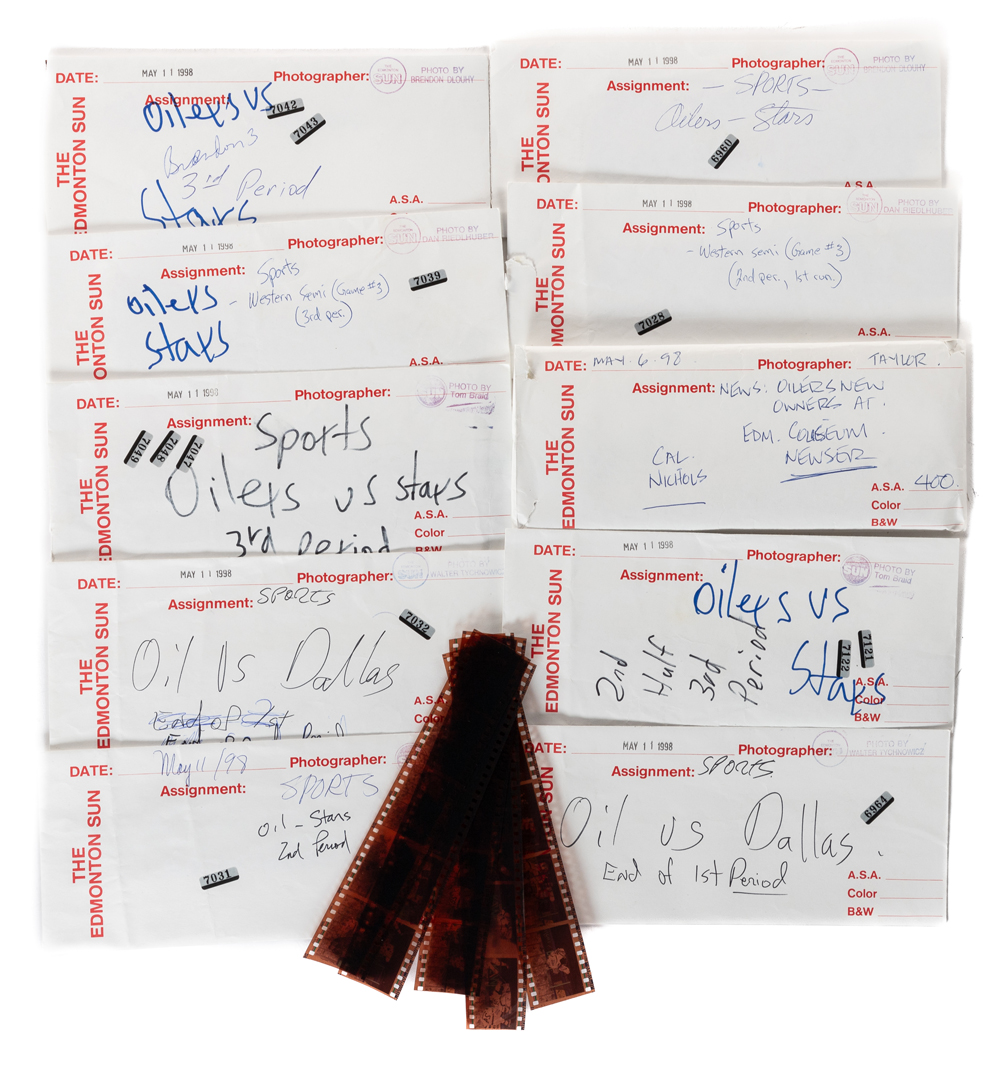 DATE: MAY 11 1998 Photographer: THE EDMONTON SUN PHOTO BY BRENDON DLOUHY
THE EDMONTON SUN
Assignment:
Oilers VS
7042
7043
Brendon 3
3rd Period
Stars
A.S.A.
DATE: MAY 11 1998 Photographer: SUN PHOTO BY DAN RIEDLHUBER
THE EDMONTON SUN
Assignment: Sports
7039
Oilers
- Western Semi (Game #3)
(3rd per.)
Stars
A.S.A.
DATE: MAY 11 1998 PHOTO BY Tom Braid
THE EDMONTON SUN
Assignment: Sports
7049
7048
7047
Oilers vs stars
3rd Period
A.S.A.
Color
B&W
DATE: MAY 11 1998 Photographer: PHOTO BY WALTER TYCHNOWICZ
THE EDMONTON SUN
Assignment: SPORTS
7032
Oil Vs Dallas
A.S.A.
End of
DATE: May 11/98 Photographer:
THE EDMONTON SUN
Assignment: SPORTS
Oil - Stars
2nd Period
7031
DATE: MAY 11 1998 Photographer: THE EDMONTON SUN PHOTO BY BRENDON DLOUHY
THE EDMONTON SUN
Assignment: - SPORTS -
Oilers - Stars
6960
A.S.A.
DATE: MAY 11 1998 Photographer: SUN PHOTO BY DAN RIEDLHUBER
THE EDMONTON SUN
Assignment: Sports
- Western Semi (Game #3)
(2nd per., 1st run.)
7028
A.S.A.
DATE: MAY. 6. 98 Photographer: TAYLOR.
THE EDMONTON SUN
Assignment: NEWS: OILERS NEW
OWNERS AT.
EDM. COLISEUM.
CAL. NICHOLS
NEWSER
A.S.A. 400.
Color
B&W
DATE: MAY 11 1998 Photographer: SUN PHOTO BY Tom Braid
THE EDMONTON SUN
Assignment:
Oilers VS
Stars
2nd
Half
3rd
Period
7122
7121
A.S.A.
Color
B&W
DATE: MAY 11 1998 Photographer: PHOTO BY WALTER TYCHNOWICZ
SUN
Assignment: SPORTS
6964
Oil vs Dallas.
End of 1st Period
A.S.A.
Color
B&W